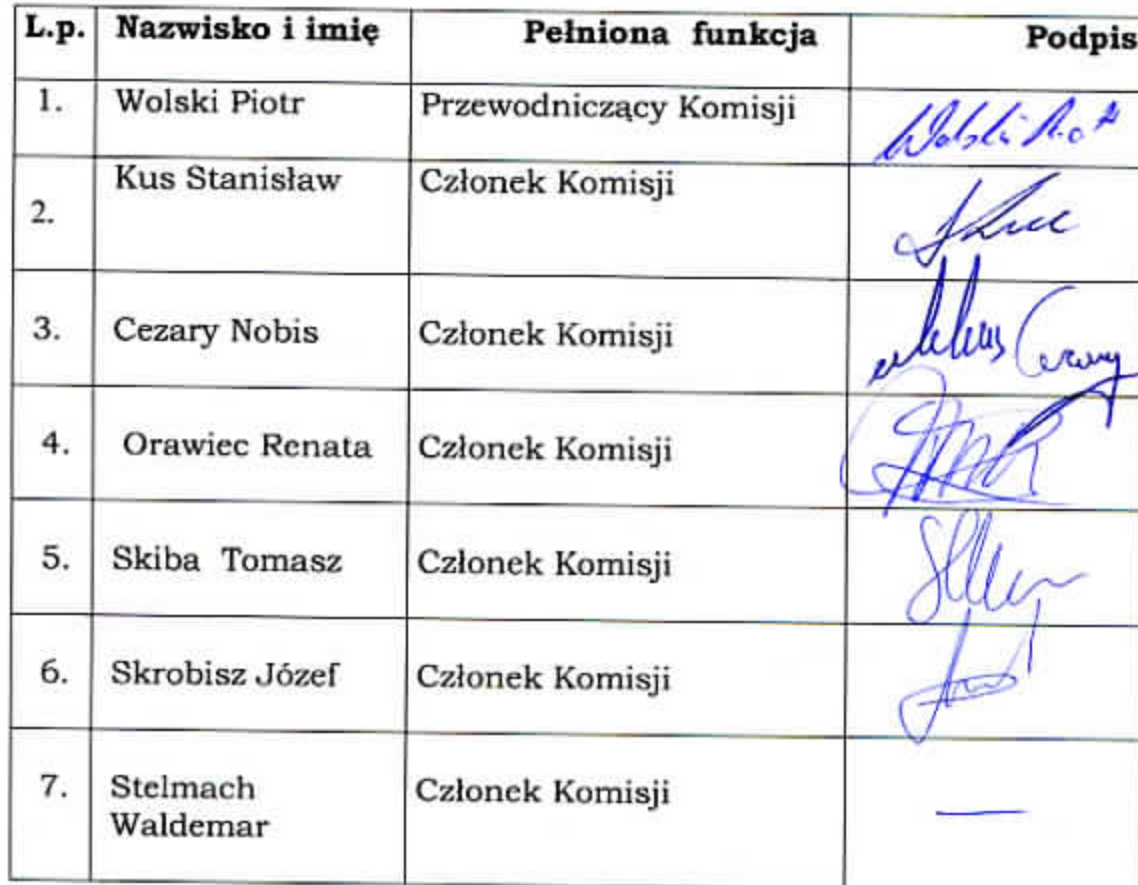 L.p. Nazwisko i imię Pełniona funkcja Podpis
1. Wolski Piotr Przewodniczący Komisji Wolski
2. Kus Stanisław Członek Komisji
3. Cezary Nobis Członek Komisji Cezary
4. Orawiec Renata Członek Komisji
5. Skiba Tomasz Członek Komisji
6. Skrobisz Józef Członek Komisji
7. Stelmach Członek Komisji —
Waldemar